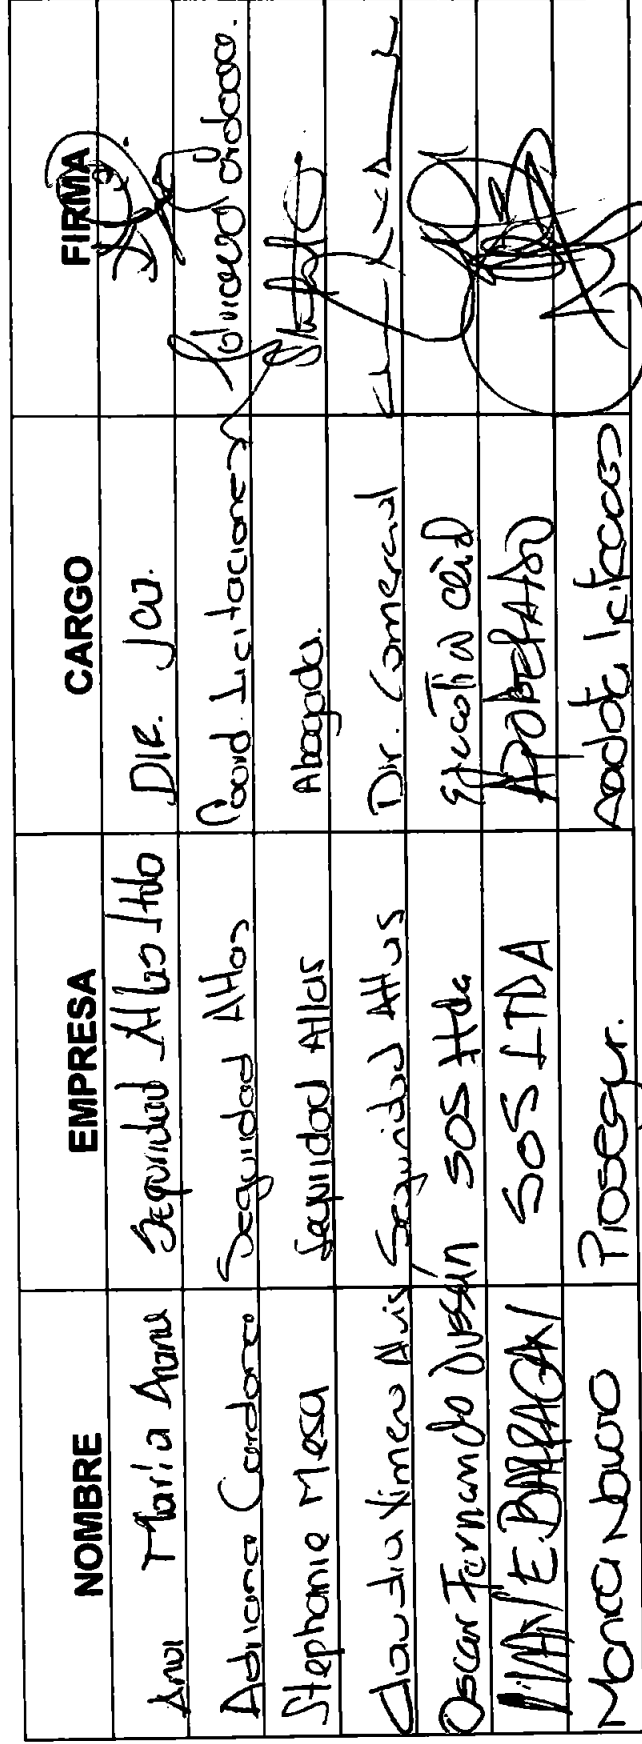 NOMBRE EMPRESA CARGO FIRMA
Ana María Seguridad Atlas Ltda DIR. JCU.
Adriana Cardona Seguridad Atlas Coord. Licitaciones Adriana Cardona.
Stephanie Mesa Seguridad Atlas Abogada.
Claudia Ximena Seguridad Atlas Dir. Comercial
Oscar Fernando Dussán SOS Ltda
E. BARRAGAN SOS LTDA
Monica Navarro Prosegur.